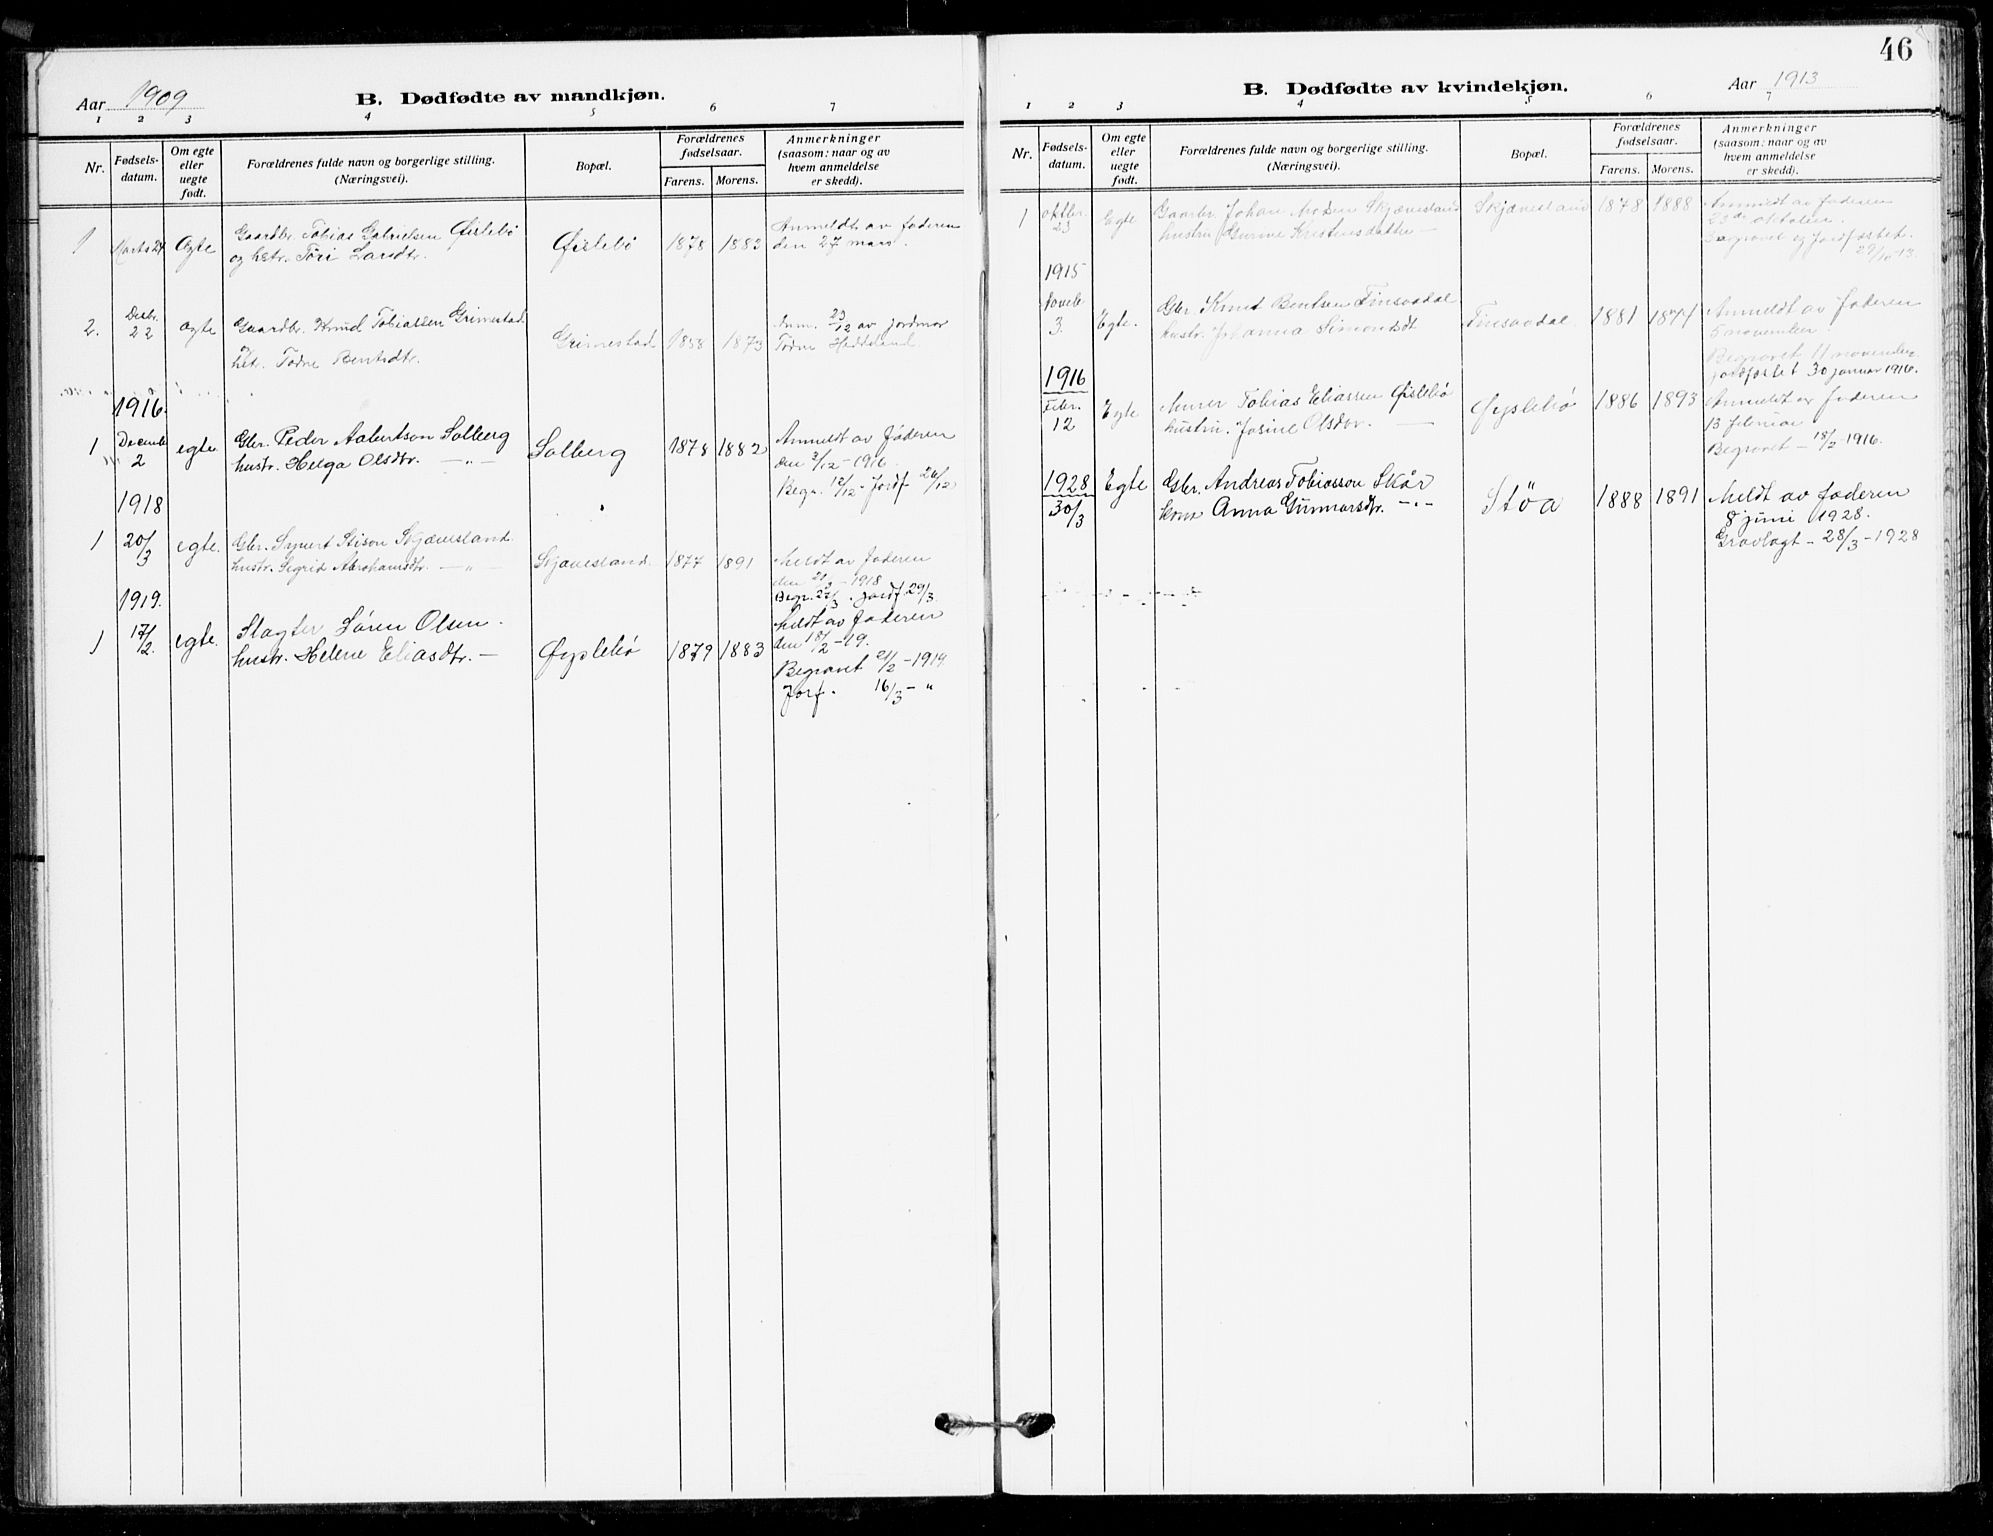 46
Aar 1909
B. Dødfødte av mandkjøn.
1 2 3 4 5 6 7
Nr.
Fødsels-
datum.
Om egte
eller
uegte
født.
Forældrenes fulde navn og borgerlige stilling.
(Næringsvei).
Bopæl.
Forældrenes
fødselsaar.
Farens. Morens.
Anmerkninger
(saasom: naar og av
hvem anmeldelse
er skedd).
1 Marts 24 Ogte Gaardbr. Tobias Gabrielsen Øislebø Øislebø 1878 1883 Anmeldt av faderen
og hstr. Tori Larsdtr. den 27 mars.
2. Desbr. 22 Ogte Gaardbr. Knud Tobiassen Grimestad Grimestad 1858 1873 Anm. 23/12 av jordmor
og hstr. Todne Berntsdtr. Todne Heddeland
1916.
1 Decembe 2 egte Gbr. Peder Aabertson Solberg Solberg 1878 1882 Anmeldt av faderen
hustr. Helga Olsdtr. —„— den 3/12-1916.
Begr. 12/12 - Jordf 26/12
1918
1 20/3 egte. Gbr. Syvert Stison Skjævesland Skjævesland. 1877 1891 Meldt av faderen
hustr. Sigrid Abrahamsdtr. —„— den 21/3-1918
Begr. 27/3. Jordf. 29/3.
1919.
1 17/2. egte. Slagter Søren Olsen. Øyslebø 1879 1883 Meldt av faderen
hustr. Helene Eliasdtr. — den 18/2-19.
Begravet 21/2-1919
Jorf. 16/3 - „
B. Dødfødte av kvindekjøn.
Aar 1913
1 2 3 4 5 6 7
Nr.
Fødsels-
datum.
Om egte
eller
uegte
født.
Forældrenes fulde navn og borgerlige stilling.
(Næringsvei).
Bopæl.
Forældrenes
fødselsaar.
Farens. Morens.
Anmerkninger
(saasom: naar og av
hvem anmeldelse
er skedd).
1 Oktbr. 23 Egte Gaarbr. Johan Skjævesland Skjævesland 1878 1888 Anmeldt av faderen
hustru Gurine — 23de oktober.
Begravet og Jordfæstet.
29/10-13.
1915
Novebr 3. Egte. Gbr. Knut Bentsen Finsaadal Finsaadal 1881 1874 Anmeldt av faderen
hustr. Johanna Simonsdt 5 november.
Begravet 11 november
jordfæstet 30 januar 1916.
1916
Febr. 12 Egte Murer Tobias Eliassen Øislebø Øyslebø 1886 1893 Anmeldt av faderen
hustru. Josine Olsdtr. — 13 februar
Begravet - 18/2-1916.
1928
30/3 Egte Gbr. Andreas Tobiasson Skår Støa 1888 1891 Meldt av faderen
kona Anna Gunnarsdtr. —„— 8 juni 1928.
Gravlagt - 28/3-1928